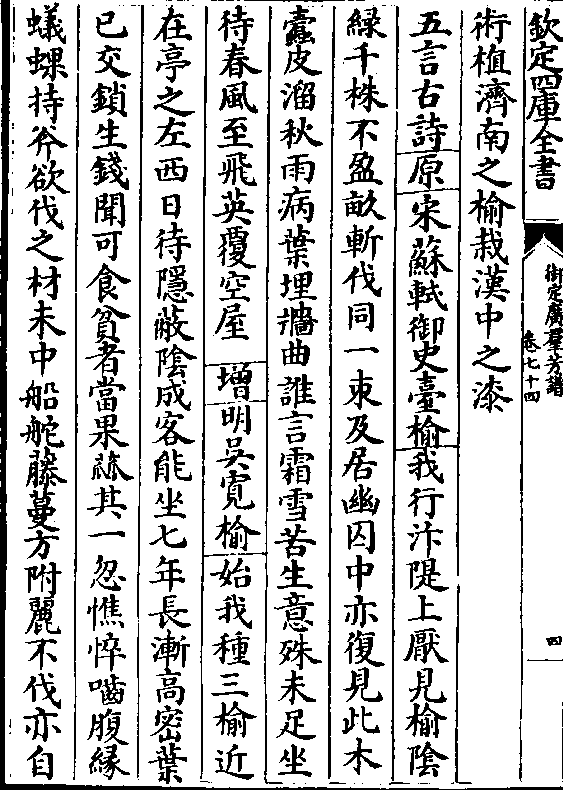 欽定四庫全書
御定廣羣芳譜
卷七十四
四
術植濟南之榆栽漢中之漆
五言古詩原宋蘇軾御史臺榆我行汴隄上厭見榆陰
緑千株不盈畝斬伐同一束及居幽囚中亦復見此木
蠹皮溜秋雨病葉埋墻曲誰言霜雪苦生意殊未足坐
待春風至飛英覆空屋增明吳寛榆始我種三榆近
在亭之左西日待隱蔽陰成客能坐七年長漸高密葉
已交鎖生錢聞可食貧者當果蓏其一忽憔悴嚙腹緣
蟻蜾持斧欲伐之材未中船舵藤蔓方附麗不伐亦自